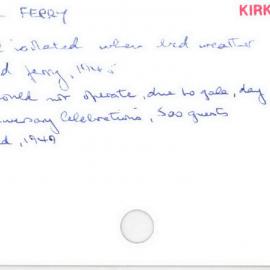 FERRY KIRK
isolated when bad weather
ferry, 1945
could not operate, due to gale, day
versary celebrations, 500 guests
d, 1949